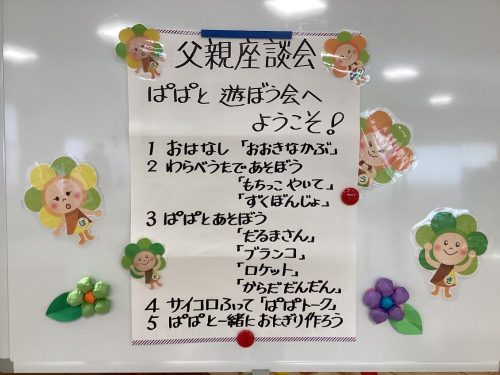 父親座談会
ぱぱと 遊ぼう会へ
ようこそ!
1 おはなし「おおきなかぶ」
2 わらべうたであそぼう
「もちっこ やいて」
「ずくぼんじょ」
3 ぱぱとあそぼう
「だるまさん」
「ブランコ」
「ロケット」
「からだ だんだん」
4 サイコロふって「ぱぱトーク」
5 ぱぱと一緒に おにぎり作ろう